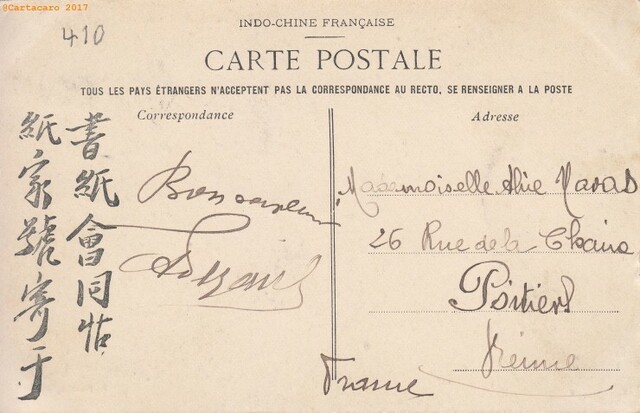 @Cartacaro 2017
410
INDO-CHINE FRANÇAISE
CARTE POSTALE
TOUS LES PAYS ÉTRANGERS N'ACCEPTENT PAS LA CORRESPONDANCE AU RECTO, SE RENSEIGNER A LA POSTE
Correspondance
Adresse
書紙會同
紙家號寄于
Bon
Mademoiselle
26 Rue de la
Poitiers
Vienne
France